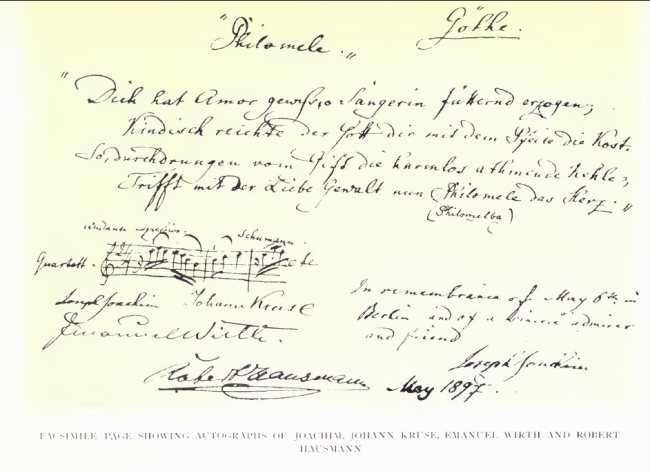 "Philomele."
Göthe.
"Dich hat Amor gewiss, o Sängerin fütternd erzogen;
Kindisch reichte der Gott dir mit dem Pfeile die Kost.
So, durchdrungen vom Gift die harmlos athmende Kehle,
Trifft mit der Liebe Gewalt nun Philomele das Herz."
(Philomelba)
Schumann.
Quartett.
etc
Joseph Joachim Johann Kruse
Emanuel Wirth.
Robert Hausmann
In remembrance of May 6th in
Berlin and of a sincere admirer
and friend
Joseph Joachim
May 1897.
FACSIMILE PAGE SHOWING AUTOGRAPHS OF JOACHIM, JOHANN KRUSE, EMANUEL WIRTH AND ROBERT
HAUSMANN